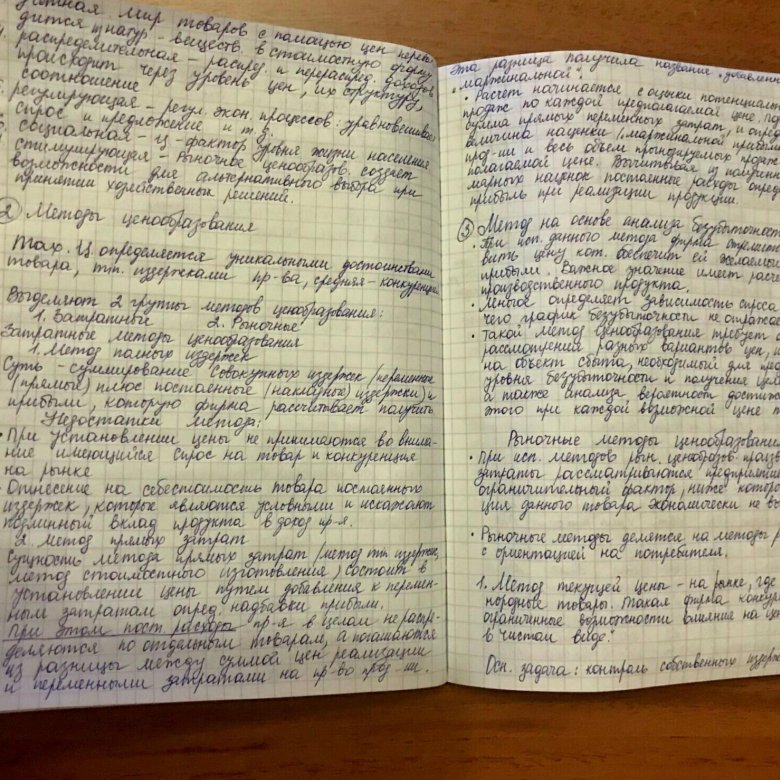 мир товаров с помощью цен
дится из натур.-веществ. в стоимостную форму
распределительная - распред. и перераспред. доходов
происходит через уровень цен, их структуру,
соотношение
регулирующая - регул. экон. процессов: уравновешивает
спрос и предложение и т.д.
социальная - Ц - фактор уровня жизни населения
стимулирующая - рыночное ценообразов. создает
возможности для альтернативного выбора при
принятии хозяйственных решений.
2 Методы ценообразования
Max. Ц. определяется уникальными достоинствами
товара, min. издержками пр-ва, средняя - конкуренцией
Выделяют 2 группы методов ценообразования:
1. Затратный 2. Рыночные
Затратные методы ценообразования
1. Метод полных издержек
Суть - суммирование совокупных издержек (переменные
(прямые) плюс постоянные (накладные) издержки) и
прибыли, которую фирма рассчитывает получить
Недостатки метода:
• При установлении цены не принимаются во внима-
ние имеющийся спрос на товар и конкуренция
на рынке
• Отнесение на себестоимость товара постоянных
издержек, которые являются условными и искажают
подлинный вклад продукта в доход пр-я.
2. Метод прямых затрат
Сущность метода прямых затрат (метод min. издержек,
метод стоимостного изготовления) состоит в
установлении цены путем добавления к перемен-
ным затратам опред. надбавки прибыли.
При этом пост. расходы пр-я в целом не распре-
деляются по отдельным товарам, а погашаются
из разницы между суммой цен реализации
и переменными затратами на пр-во прод-ии.
Эта разница получила название
"маржинальной".
• Расчет начинается с оценки
продаж по каждой предполагаемой цене.
сумма прямых переменных затрат, и
величина наценки
прод-ии и весь объем прогнозируемых
полагаемой цене. Вычитывая из
наценок постоянные расходы
прибыль при реализации продукции.
3 Метод на основе анализа
• При исп. данного метода фирма
вить цену кот. обеспечит ей
прибыли. Важное значение имеет
производственного продукта.
• Многое определяет зависимость спроса
чего график безубыточности не
• Такой метод ценообразования требует
рассмотрения разных вариантов цен,
на объект сбыта, необходимый для
уровня безубыточности и получения
а также анализа вероятности
этого при каждой возможной цене
Рыночные методы ценообразования
• При исп. методов рын. ценообразов.
затраты рассматриваются
ограничительный фактор, ниже
ция данного товара экономически не
• Рыночные методы делятся на методы
с ориентацией на потребителя.
1. Метод текущей цены - на рынке, где
нородные товары. Такая фирма
ограниченные возможности влияние на
в чистом виде."
Осн. задача: контроль собственных